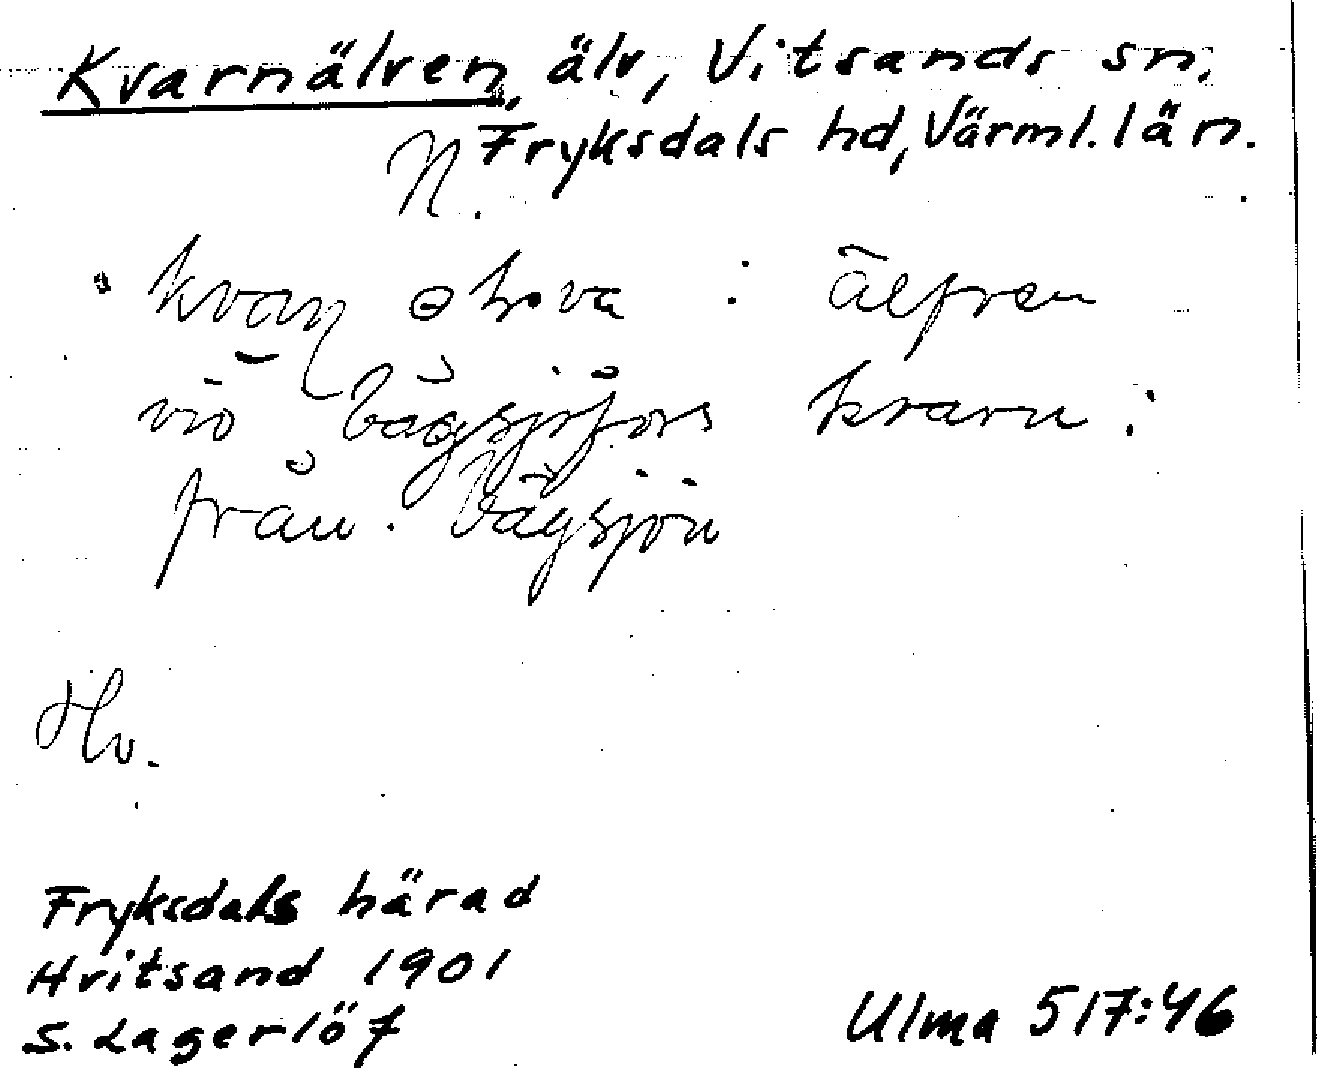 Kvarnälven, älv, Vitsands sn,
N. Fryksdals hd, Värml. län.
älfven
vid Bågsjöfors kvarn;
från Bågsjön
Hv.
Fryksdals härad
Hvitsand 1901
S. Lagerlöf
Ulma 517:46